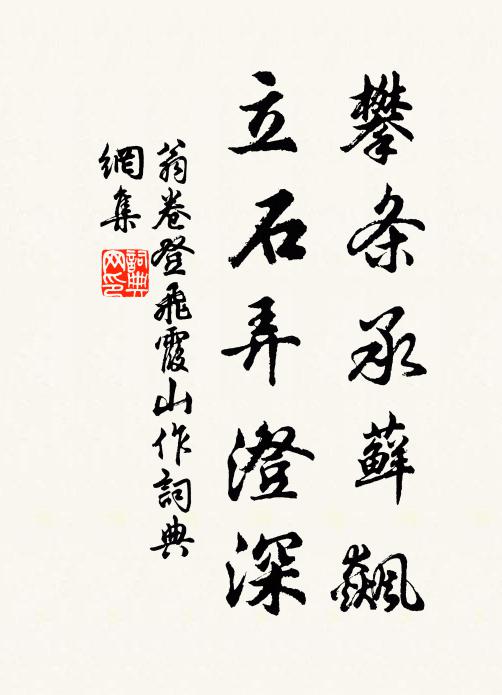 攀条承蘚飙
立石弄澄深
翁卷登飛霞山作詞典
網集
詞典网印